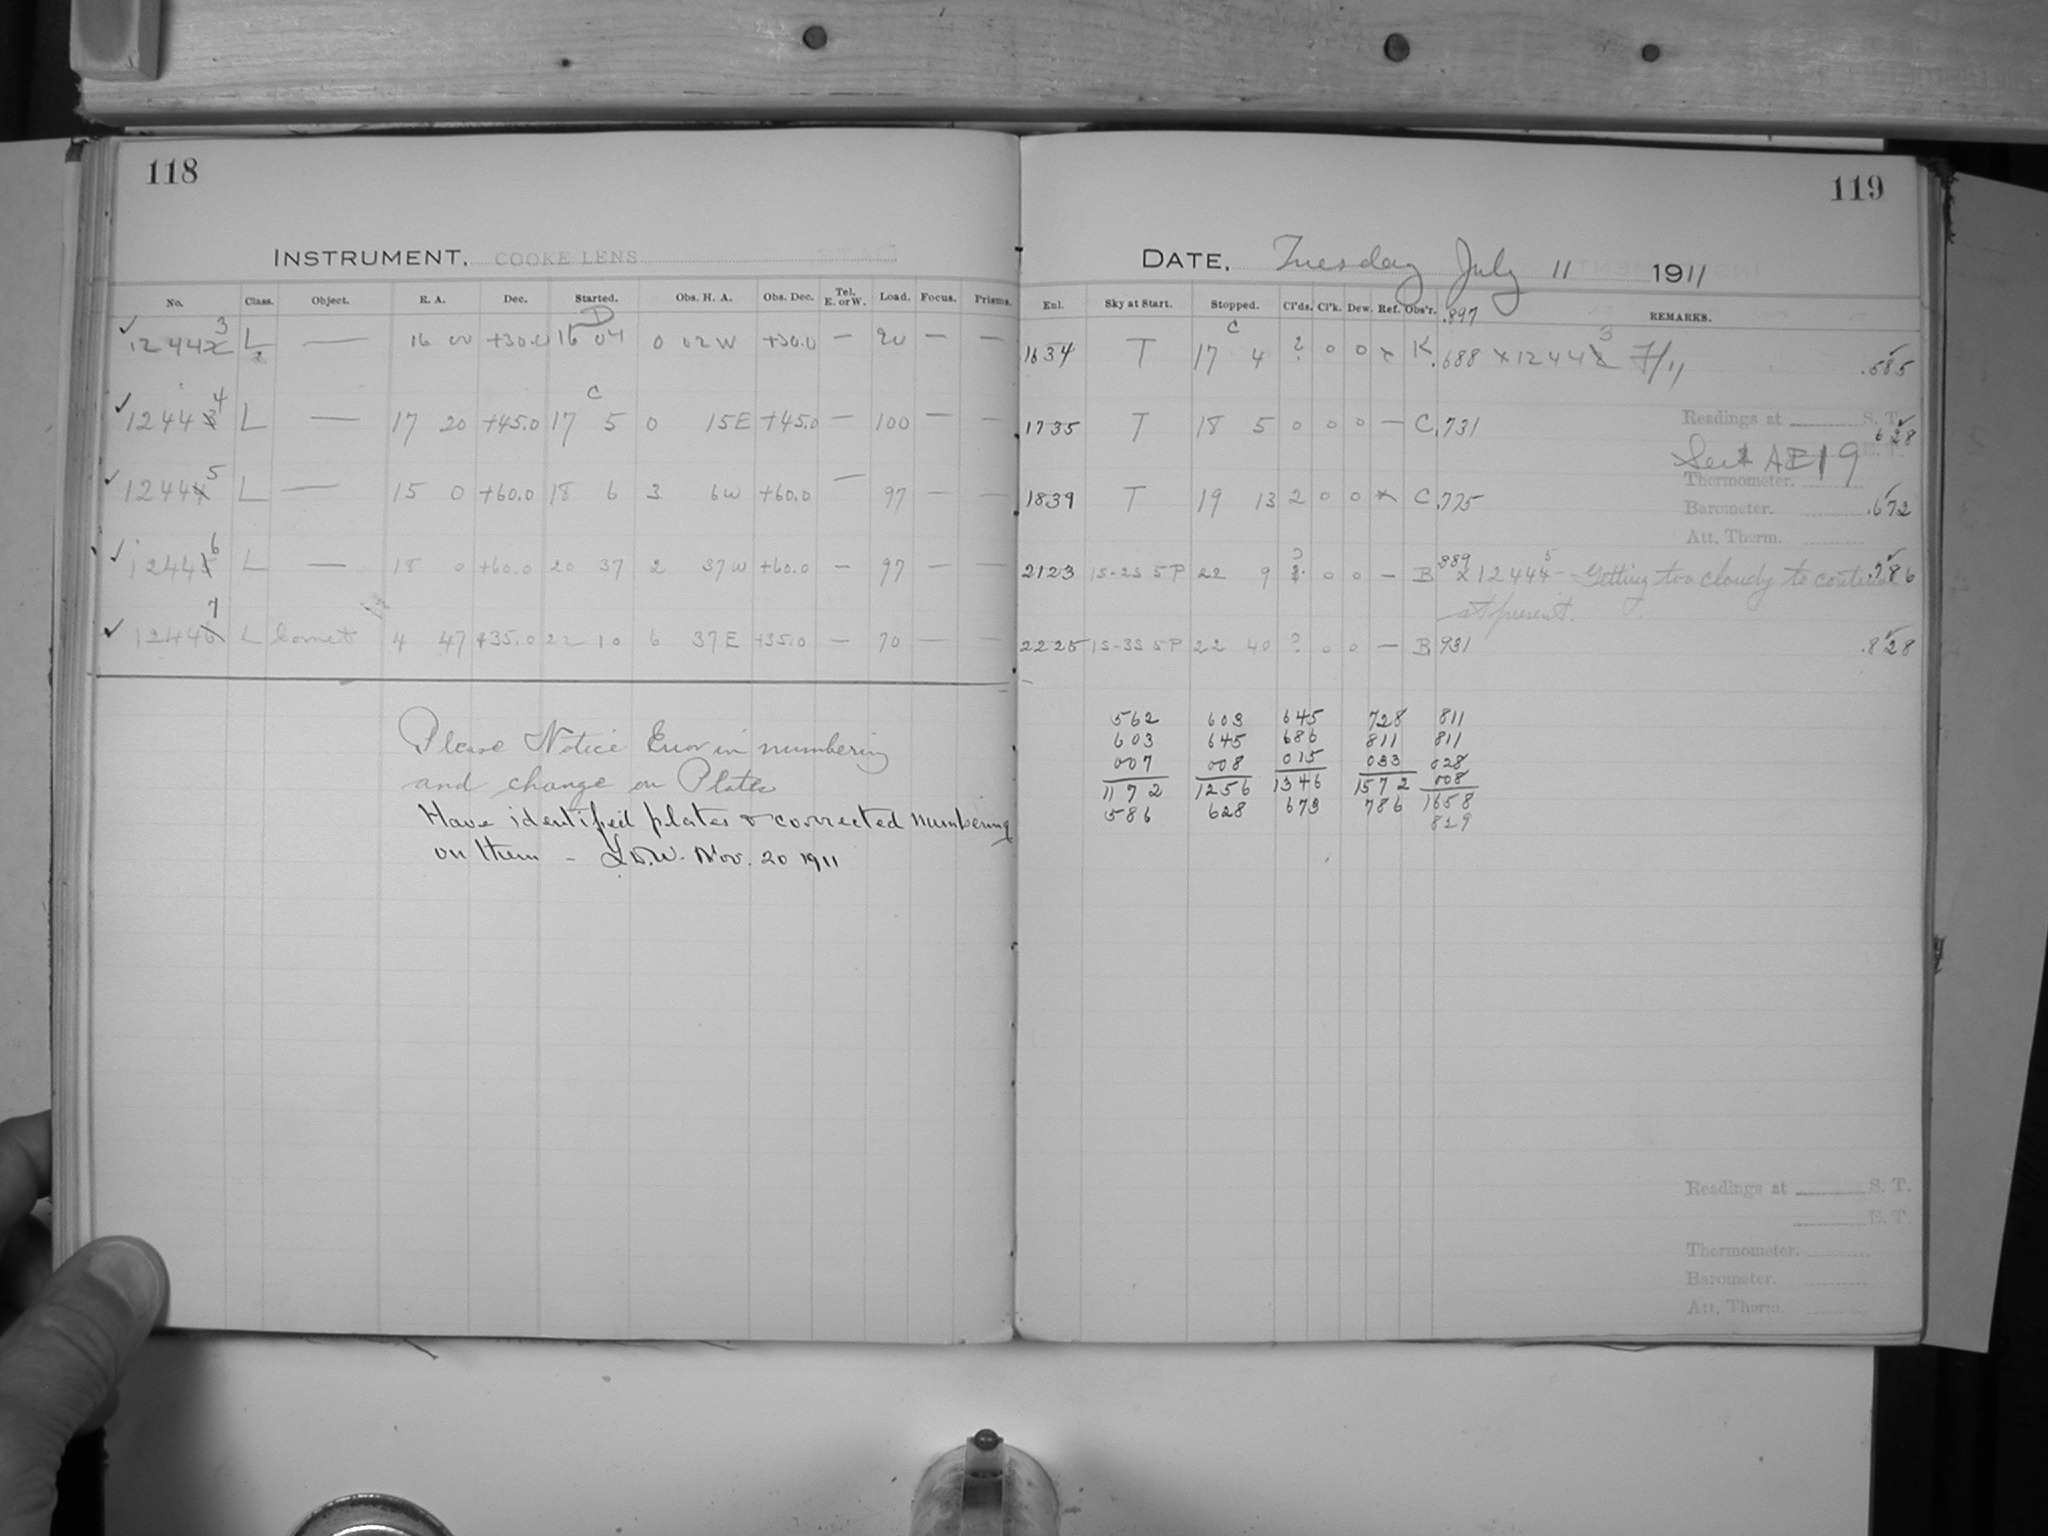 118
INSTRUMENT, COOKE LENS
No. Class. Object. R. A. Dec. Started. Obs. H. A. Obs. Dec. Tel. E. or W. Load. Focus. Prisms.
D
12442 3 L — 16 00 +30.0 16 04 0 02 W +30.0 — 90 — —
C
12443 4 L — 17 20 +45.0 17 5 0 15 E +45.0 — 100 — —
12444 5 L — 15 0 +60.0 18 6 3 6 W +60.0 — 97 — —
12445 6 L — 18 0 +60.0 20 37 2 37 W +60.0 — 97 — —
12446 7 L Comet 4 47 +35.0 22 10 6 37 E +35.0 — 70 — —
Please Notice Error in numbering
and change on Plates
Have identified plates & corrected numbering
on them – L.D.W. Nov. 20 1911
119
DATE, Tuesday July 11 1911
Enl. Sky at Start. Stopped. Cl'ds. Cl'k. Dew. Ref. Obs'r. .897 REMARKS.
C
1634 T 17 4 ? 0 0 x K .688 x 12442 3 7/11 .585
Readings at S. T.
1735 T 18 5 0 0 0 — C .731 628
E. T.
Sent AE19
Thermometer.
1839 T 19 13 2 0 0 x C .775 .672
Barometer.
Att. Therm.
2123 1S-2S 5P 22 9 ? 0 0 — B .889 x 12444 5 – Getting too cloudy to continue .786
at present.
2225 1S-3S 5P 22 40 ? 0 0 — B 931 .828
562 603 645 728 811
603 645 686 811 811
007 008 015 033 028
1172 1256 1346 1572 008
586 628 673 786 1658
829
Readings at S. T.
E. T.
Thermometer.
Barometer.
Att. Therm.